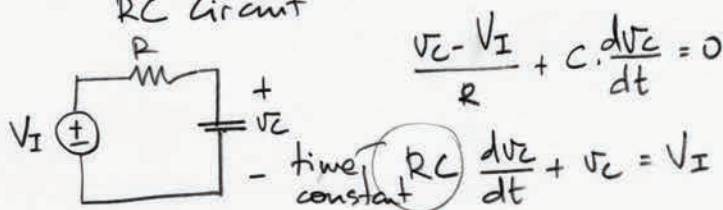 RC Circuit
R
V_I
+
-
+
v_C
-
(v_C - V_I)/R + C · dv_C/dt = 0
time constant
RC dv_C/dt + v_C = V_I